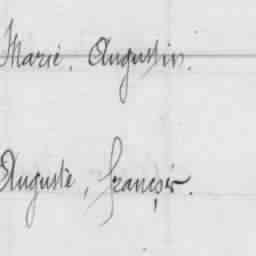 Marie, Augustin.
Auguste, françois.